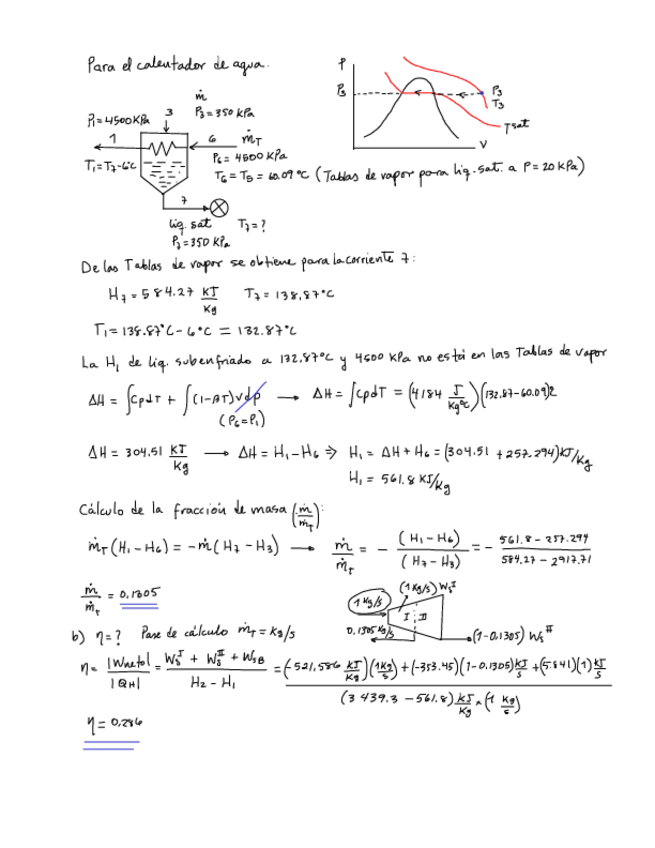 Para el calentador de agua.
ṁ
P3 = 350 KPa
3
P1 = 4500 KPa
1
6
ṁT
T1 = T7 - 6°C
P6 = 4500 KPa
T6 = T5 = 60.09 °C (Tablas de vapor para liq. sat. a P = 20 kPa)
7
liq. sat
T7 = ?
P7 = 350 KPa
P
P3
P3
T3
Tsat
V
De las Tablas de vapor se obtiene para la corriente 7:
H7 = 584.27 KJ/Kg T7 = 138,87°C
T1 = 138.87°C - 6°C = 132.87°C
La H1 de liq. subenfriado a 132,87°C y 4500 KPa no está en las Tablas de vapor
ΔH = ∫CpdT + ∫(1-βT)vdp → ΔH = ∫CpdT = (4184 J/Kg°C)(132.87-60.09)°C
(P6 = P1)
ΔH = 304.51 KJ/Kg → ΔH = H1 - H6 ⇒ H1 = ΔH + H6 = (304.51 + 257.294) KJ/Kg
H1 = 561.8 KJ/Kg
Cálculo de la fracción de masa (ṁ/ṁT):
ṁT (H1 - H6) = -ṁ (H7 - H3) → ṁ/ṁT = - (H1 - H6)/(H7 - H3) = - (561.8 - 257.294)/(584.27 - 2917.71)
ṁ/ṁT = 0,1305
(1 Kg/s) WsI
1 Kg/s
I II
0.1305 Kg/s
(1-0.1305) WsII
b) η = ? Base de cálculo ṁT = kg/s
η = |Wneto|/|QH| = (WsI + WsII + WsB)/(H2 - H1) = ((-521,586 KJ/Kg)(1 Kg/s) + (-353.45)(1-0.1305) KJ/s + (5.841)(1) KJ/s)/((3 439.3 - 561.8) KJ/Kg × (1 Kg/s))
η = 0,286